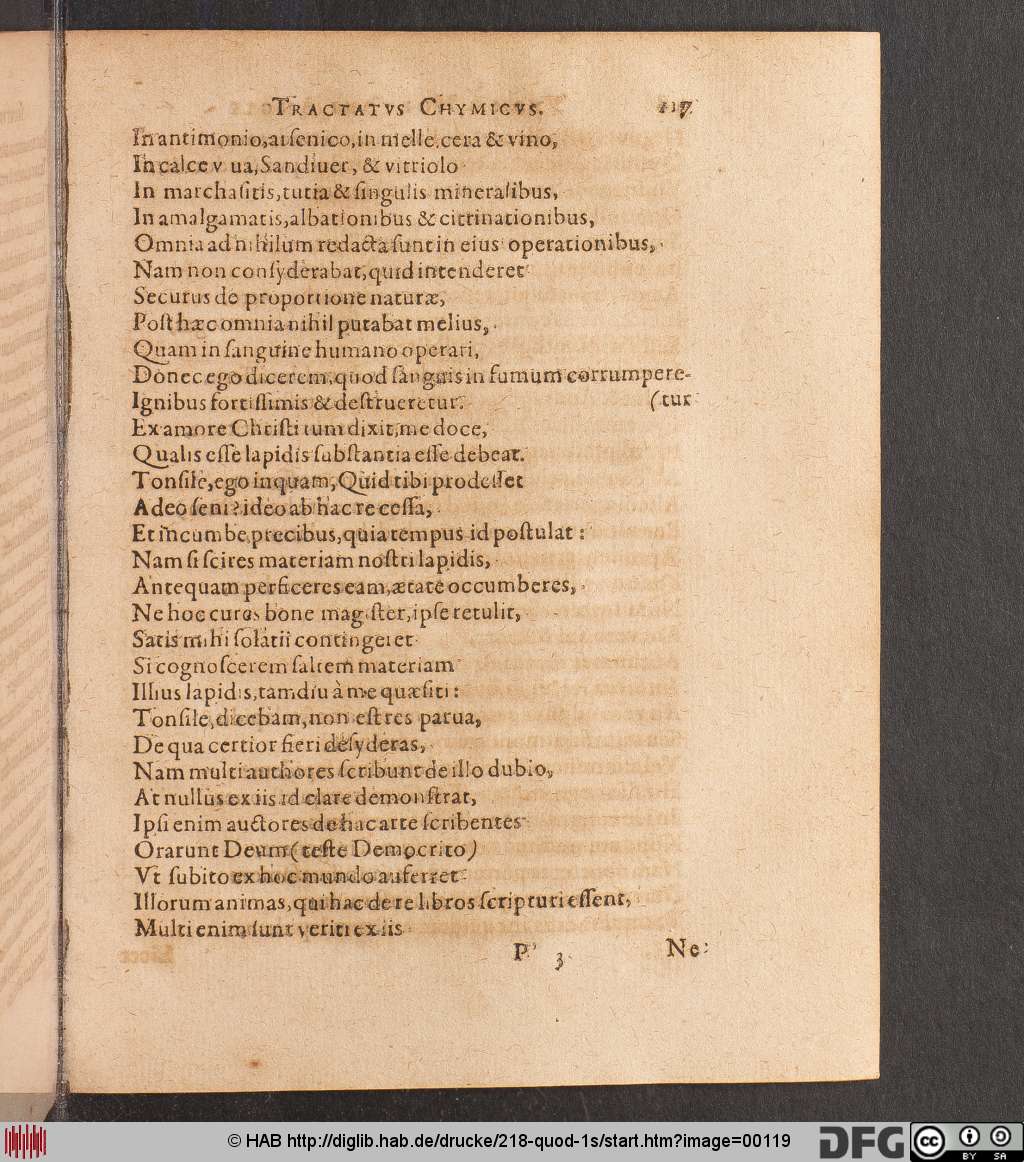 TRACTATVS CHYMICVS. 117
In antimonio, arsenico, in melle, cera & vino,
In calce v ua, Sandiuer, & vitriolo
In marchasitis, tutia & singulis mineralibus,
In amalgamatis, albationibus & citrinationibus,
Omnia ad nihilum redacta sunt in eius operationibus,
Nam non consyderabat, quid intenderet
Securus de proportione naturæ,
Post hæc omnia nihil putabat melius,
Quam in sanguine humano operari,
Donec ego dicerem, quod sanguis in fumum corrumpere-
Ignibus fortissimis & destrueretur. (tur
Ex amore Christi tum dixit, me doce,
Qualis esse lapidis substantia esse debeat.
Tonsile, ego inquam, Quid tibi prodesset
Adeo seni? ideo ab hac re cessa,
Et incumbe precibus, quia tempus id postulat:
Nam si scires materiam nostri lapidis,
Antequam perficeres eam, ætate occumberes,
Ne hoc cures bone magister, ipse retulit,
Satis mihi solatii contingeret
Si cognoscerem saltem materiam
Illius lapidis, tamdiu à me quæsiti:
Tonsile, dicebam, non est res parua,
De qua certior fieri desyderas,
Nam multi authores scribunt de illo dubio,
At nullus ex iis id clare demonstrat,
Ipsi enim auctores de hac arte scribentes
Orarunt Deum (teste Democrito)
Vt subito ex hoc mundo auferret
Illorum animas, qui hac de re libros scripturi essent,
Multi enim sunt veriti ex iis
P 3 Ne
© HAB http://diglib.hab.de/drucke/218-quod-1s/start.htm?image=00119
DFG cc BY SA